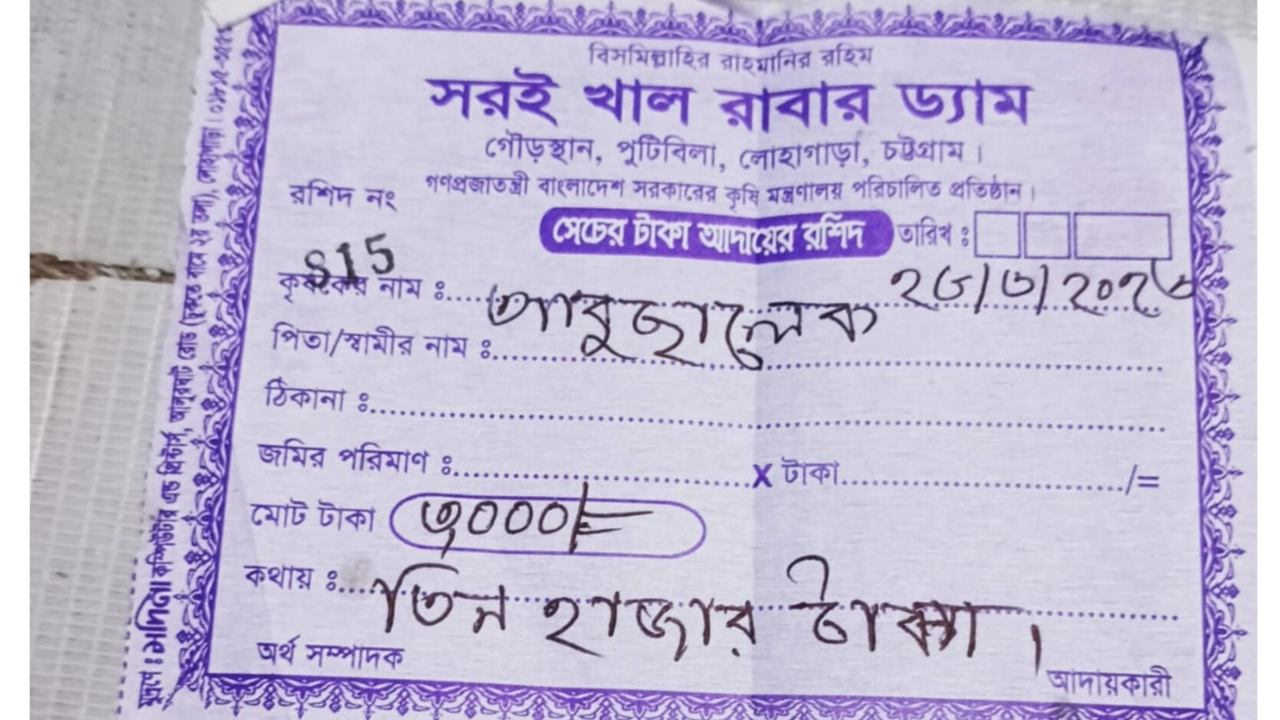 বিসমিল্লাহির রাহমানির রহিম
সরই খাল রাবার ড্যাম
গৌড়স্থান, পুটিবিলা, লোহাগাড়া, চট্টগ্রাম।
গণপ্রজাতন্ত্রী বাংলাদেশ সরকারের কৃষি মন্ত্রণালয় পরিচালিত প্রতিষ্ঠান।
রশিদ নং
515
সেচের টাকা আদায়ের রশিদ
তারিখ ঃ
২৬/৩/২০২৬
কৃষকের নাম ঃ
পিতা/স্বামীর নাম ঃ
ঠিকানা ঃ
জমির পরিমাণ ঃ x টাকা /=
মোট টাকা ৩০০০/=
কথায় ঃ তিন হাজার টাকা।
অর্থ সম্পাদক আদায়কারী